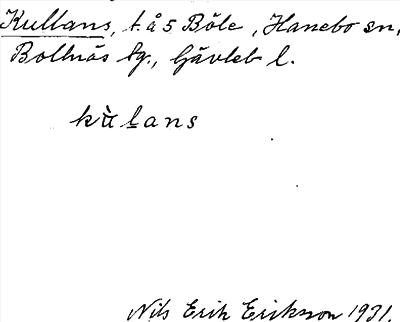 Kullans, t. å 5 Böle, Hanebo sn,
Bollnäs tg., Gävleb l.
kù̀lans
Nils Erik Erikson 1931.